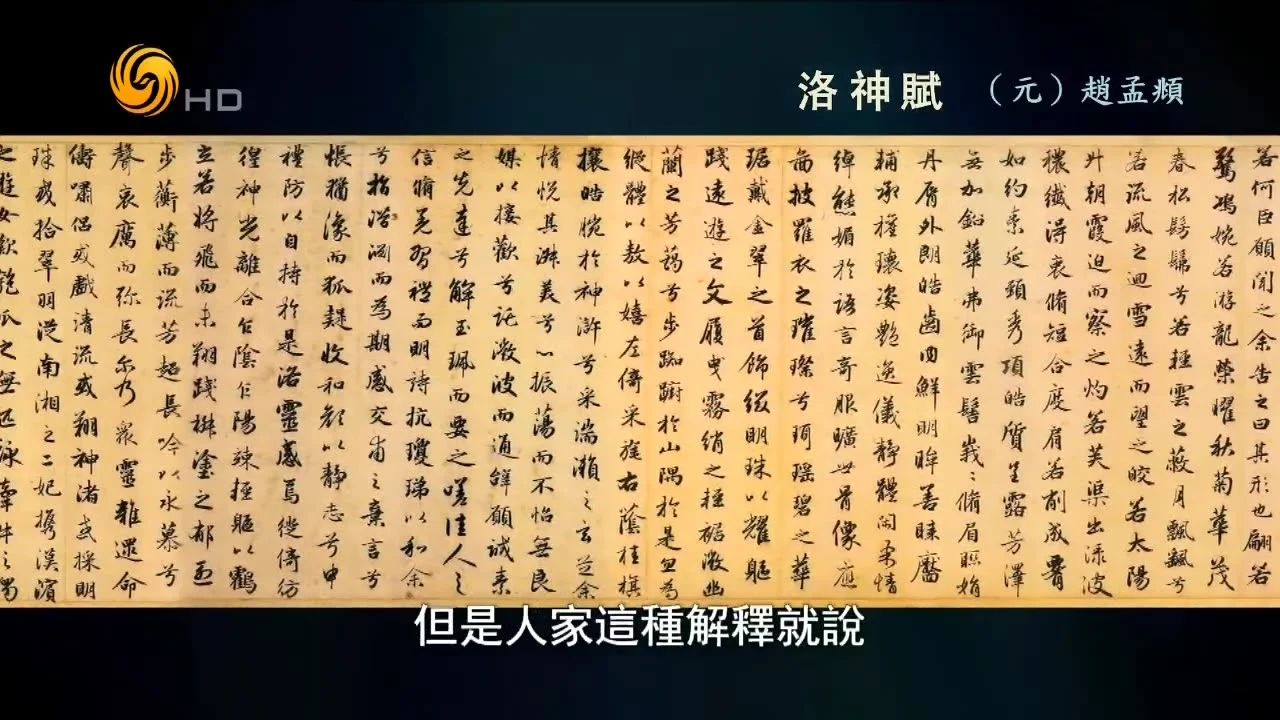 HD
洛神賦 （元）趙孟頫
若何臣願聞之余告之曰其形也翩若
驚鴻婉若游龍榮曜秋菊華茂
春松髣髴兮若輕雲之蔽月飄飄兮
若流風之迴雪遠而望之皎若太陽
升朝霞迫而察之灼若芙渠出淥波
穠纖得衷脩短合度肩若削成腰
如約素延頸秀項皓質呈露芳澤
無加鉛華弗御雲髻峩〻脩眉聯娟
丹脣外朗皓齒内鮮明眸善睞靨
輔承權瓌姿艷逸儀靜體閑柔情
綽態媚於語言奇服曠世骨像應
圖披羅衣之璀璨兮珥瑶碧之華
琚戴金翠之首飾綴明珠以耀軀
踐遠遊之文履曳霧綃之輕裾微幽
蘭之芳藹兮步踟躕於山隅於是忽焉
縱體以敖以嬉左倚采旄右蔭桂旗
攘皓腕於神滸兮采湍瀨之玄芝余
情悅其淑美兮心振蕩而不怡無良
媒以接歡兮託微波而通辭願誠素
之先達兮解玉珮而要之嗟佳人之
信脩羌習禮而明詩抗瓊珶以和余
兮指潛淵而為期感交甫之棄言兮
悵猶豫而狐疑收和顏以靜志兮申
禮防以自持於是洛靈感焉徙倚彷
徨神光離合乍陰乍陽竦輕軀以鶴
立若將飛而未翔踐椒塗之郁烈
步蘅薄而流芳超長吟以永慕兮
聲哀厲而彌長爾乃衆靈雜遝命
儔嘯侶或戲清流或翔神渚或採明
珠或拾翠羽從南湘之二妃攜漢濱
之遊女歎匏瓜之無匹詠牽牛之獨
但是人家這種解釋就說